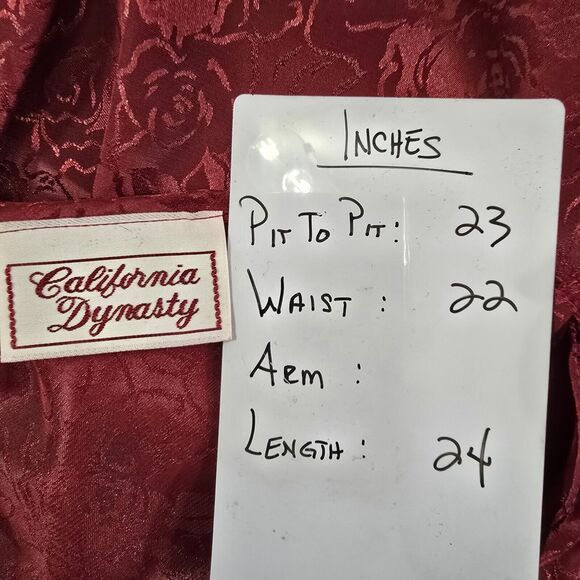 INCHES
PIT TO PIT: 23
WAIST : 22
ARM :
LENGTH : 24
California
Dynasty